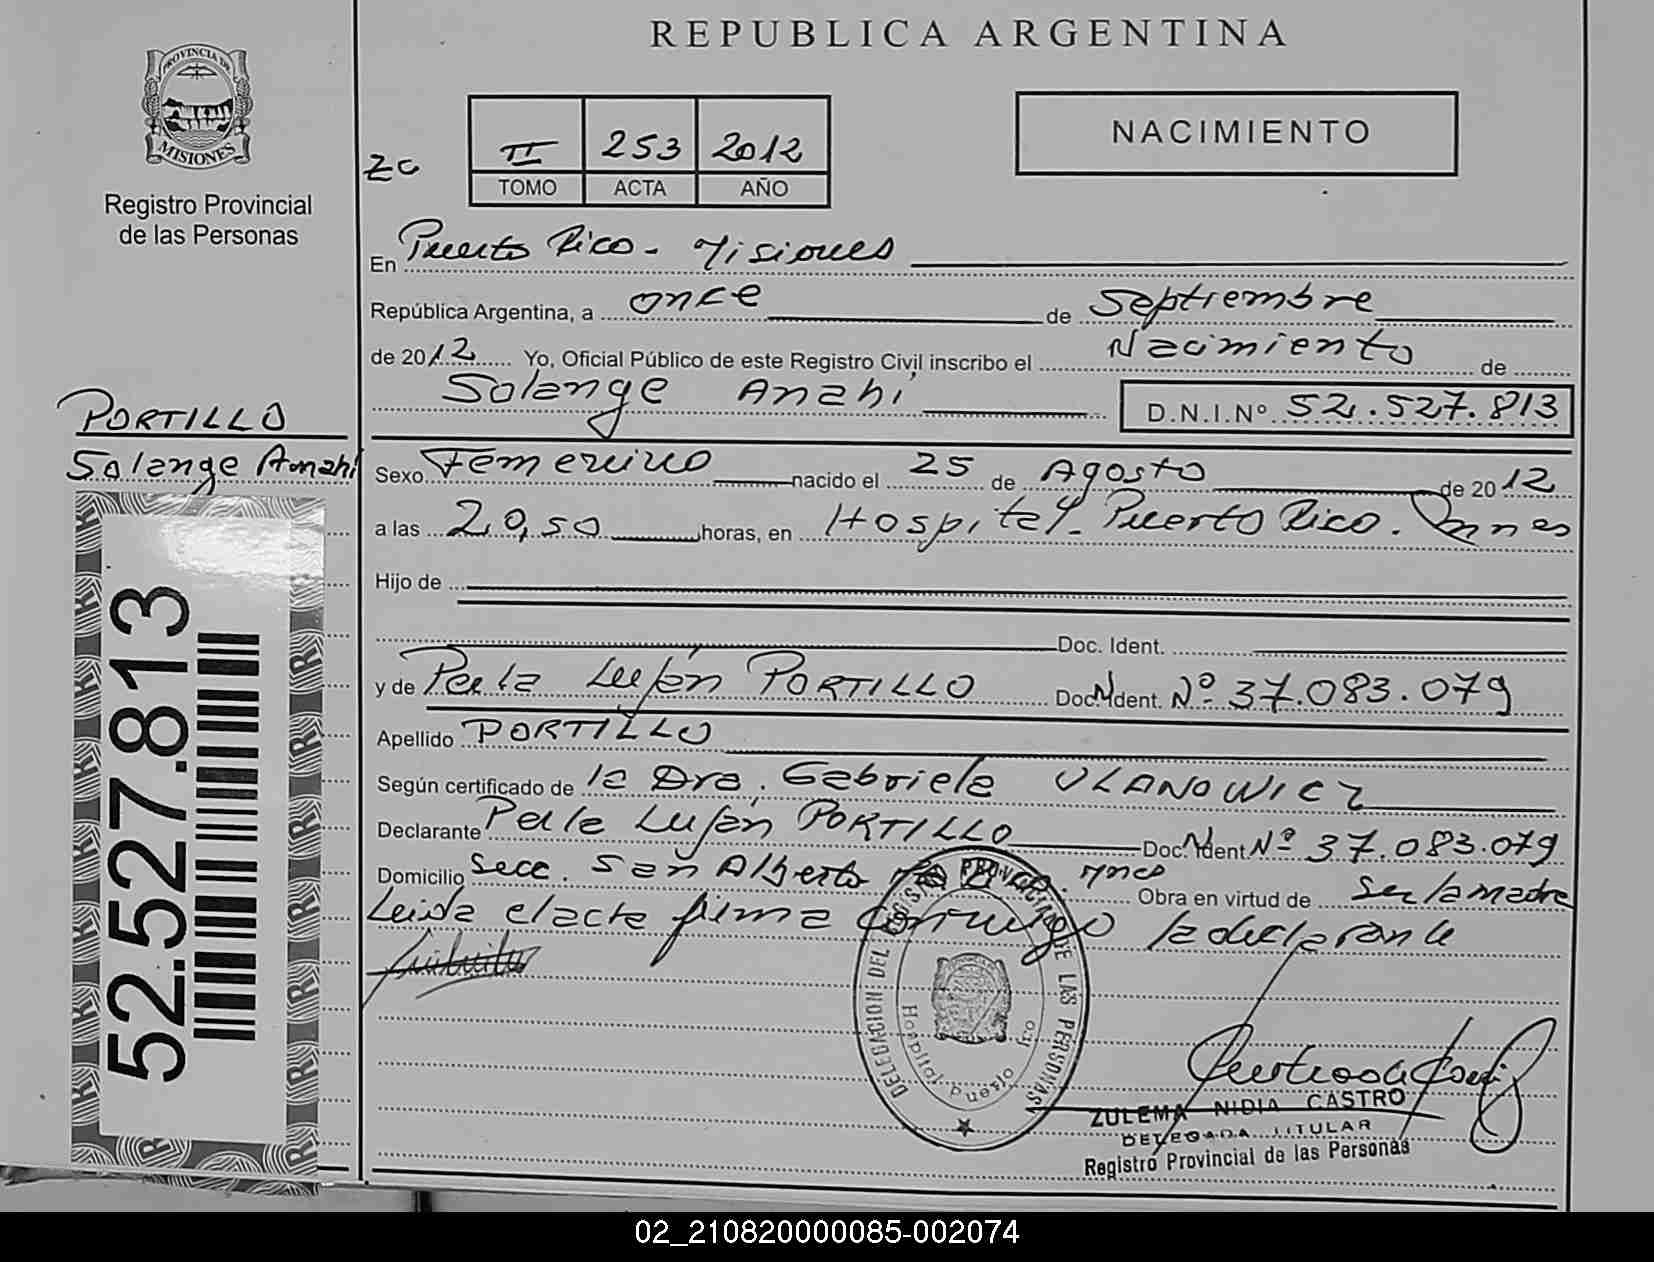 REPUBLICA ARGENTINA
PROVINCIA DE
MISIONES
Registro Provincial
de las Personas
zc
II 253 2012
TOMO ACTA AÑO
NACIMIENTO
En Puerto Rico - Misiones
República Argentina, a once de Septiembre
de 2012 Yo, Oficial Público de este Registro Civil inscribo el Nacimiento de
Solange Anahí D.N.I.Nº 52.527.813
PORTILLO
Solange Anahí
Sexo Femenino nacido el 25 de Agosto de 2012
a las 20,50 horas, en Hospital - Puerto Rico. Mnes
Hijo de
Doc. Ident.
y de Perla Luján PORTILLO Doc. N Ident. Nº 37.083.079
Apellido PORTILLO
Según certificado de la Dra. Gabriela ULANOWICZ
Declarante Perla Luján PORTILLO Doc. N Ident Nº 37.083.079
Domicilio Secc. San Alberto Mnes Obra en virtud de Ser la madre
Leida el acta firma conmigo la declarante
52.527.813
DELEGACION DEL REGISTRO PROVINCIAL DE LAS PERSONAS
Hospital Puerto Rico
ZULEMA NIDIA CASTRO
DELEGADA TITULAR
Registro Provincial de las Personas
02_210820000085-002074